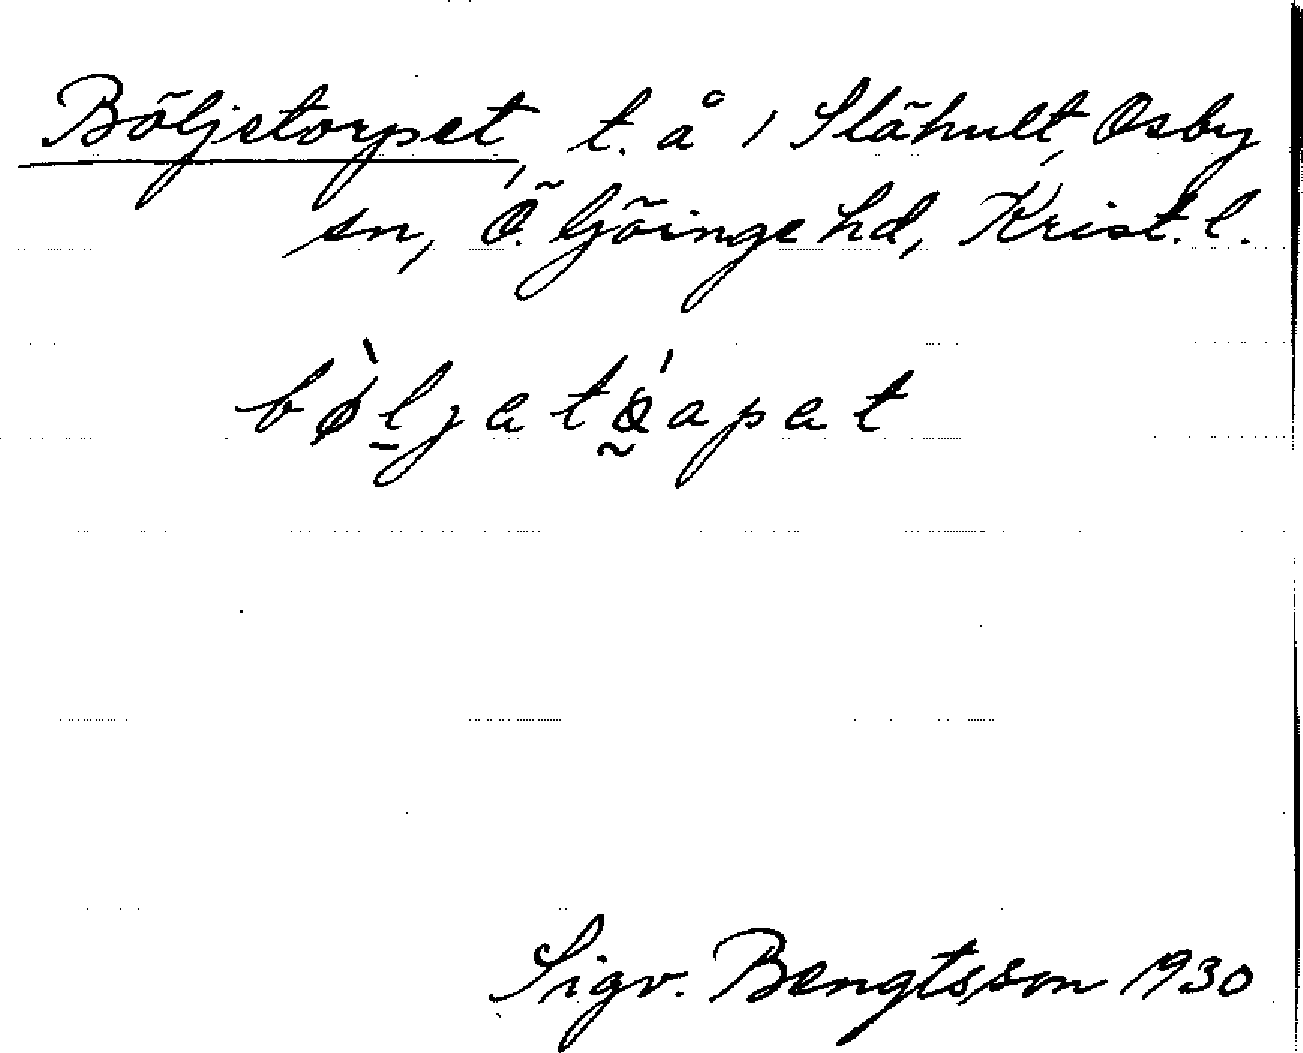 Böljetorpet, t. å 1 Slähult, Osby
sn, Ö. Göinge hd, Krist. l.
bø̀ljatǻapat
Sigv. Bengtsson 1930